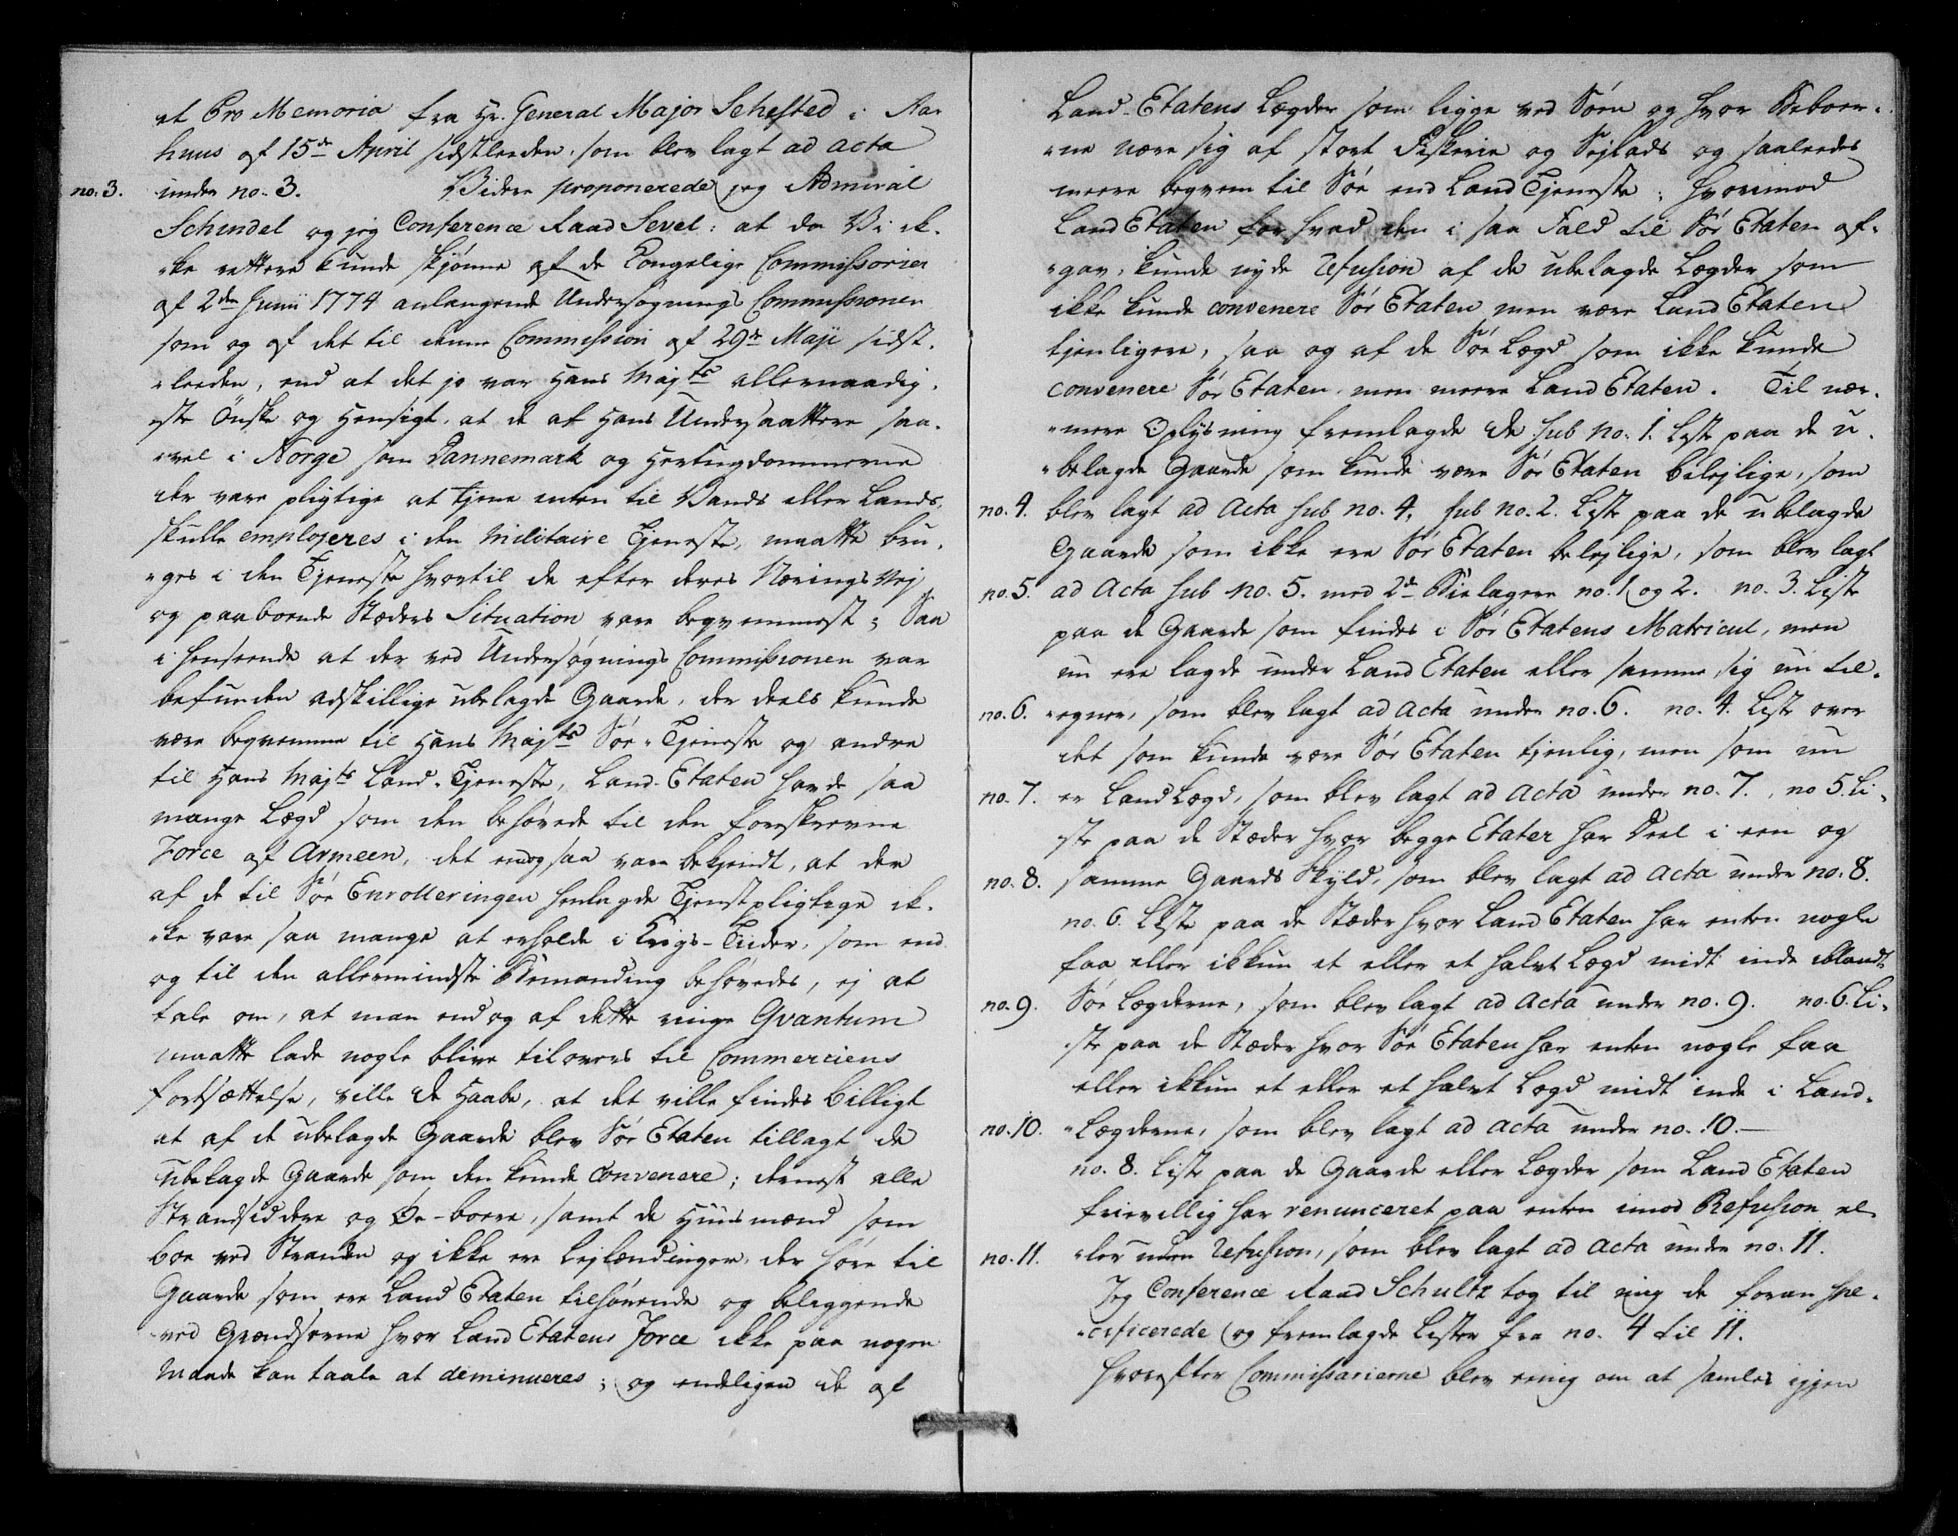 et Pro Memoria fra Hr. General Major Sehested i Aar
huus af 15de April sidstleeden, som blev lagt ad acta
no. 3. under no. 3. Videre proponerede jeg Admiral
Schindel og jeg Conference Raad Sevel: at da Vi ik-
"ke rettere kunde skjønne af de Kongelige Commissorier
af 2den Junii 1774 anlangende Undersøgnings Commissionen
som og af det til denne Commission af 29de Maji sidst-
"leeden, end at det jo var Hans Majts allernaadig-
"ste Ønske og Hensigt, at de af Hans Undersaattere saa-
"vel i Norge som Dannemark og Hertugdømmerne
der vare pligtige at tjene enten til Vands eller Lands,
skulle employeres i den Militaire Tjeneste, maatte bru-
"ges i den Tjeneste hvortil de efter deres Nærings Vej
og paaboende Stæders Situation vare beqvemmest; Saa
i henseende at der ved Undersøgnings Commissionen var
befunden adskillige ubelagde Gaarde, der deels kunde
være beqvemme til Hans Majts Søe-Tjeneste og andre
til Hans Majts Land-Tjeneste, Land-Etaten havde saa
mange Lægd som den behøvede til den foreskrevne
Force af Armeen, det endog saa være bekjendt, at der
af de til Søe Enrolleringen henlagde Tjenstpligtige ik-
"ke vare saa mange at erholde i Krigs-Tiider, som end
og til den allermindste Bemanding behøvedes, ej at
tale om, at man endog af dette ringe Qvantum
maatte lade nogle blive tilovers til Commerciens
fortsættelse, ville De Haabe, at det ville findes billigt
at af de ubelagde Gaarde blev Søe Etaten tillagt de
ubelagde Gaarde som den kunde convenere; dernest alle
Strandsiddere og Øe-boere, samt de Huusmænd som
boe ved Stranden og ikke ere Lejlændinger, der høre til
Gaarde som ere Land Etaten tilhørende og beliggende
ved Grændserne hvor Land Etatens Force ikke paa nogen
Maade kan taale at deminueres; og endeligen de af
Land-Etatens Lægder som ligge ved Søen og hvor Beboer-
"ne nære sig af stort Fiskerie og Sejlads og saaleedes
meere beqvem til Søe end Land Tjeneste; hvorimod
Land Etaten for hvad den i saa Fald til Søe Etaten af-
"gav, kunde nyde Refusion af de ubelagde Lægder som
ikke kunde convenere Søe Etaten men være Land Etaten
tjenligere, saa og af de Søe Lægd som ikke kunde
convenere Søe Etaten, men meere Land Etaten. Til nær-
"mere Oplysning fremlagde De sub No. 1. Liste paa de u-
"belagde Gaarde som kunde være Søe Etaten belejlige, som
no. 4. blev lagt ad Acta sub no. 4, sub no. 2. Liste paa de ubelagde
Gaarde som ikke ere Søe Etaten belejlige, som blev lagt
no. 5. ad Acta sub no. 5. med 2de Bielagere no. 1 og 2. no. 3. Liste
paa de Gaarde som findes i Søe Etatens Matricul, men
nu ere lagde under Land Etaten eller samme sig nu til-
no. 6. "egner, som blev lagt ad Acta under no. 6. no. 4. Liste over
det som kunde være Søe Etaten tjenlig, men som nu
no. 7. er Land Lægd, som blev lagt ad Acta under no. 7., no 5. Li-
"ste paa de Stæder hvor begge Etater har Deel i een og
no. 8. samme Gaards Skyld, som blev lagt ad Acta under no. 8.
no. 6. Liste paa de Stæder hvor Land Etaten har enten nogle
faa eller ikkun et eller et halvt Lægd midt inde iblandt
no. 9. Søe Lægderne, som blev lagt ad Acta under no. 9. no. 6. Li-
"ste paa de Stæder hvor Søe Etaten har enten nogle faa
eller ikkun et eller et halvt Lægd midt inde i Land-
no. 10. "Lægderne, som blev lagt ad Acta under no. 10. —
no. 8. Liste paa de Gaarde eller Lægder som Land Etaten
frievillig har renunceret paa enten imod Refusion el-
no. 11. "ler uden Refusion, som blev lagt ad Acta under no. 11.
Jeg Conference Raad Schultz tog til mig de foran spe-
"cificerede og fremlagde Lister fra no. 4 til 11.
Hvorefter Commissarierne blev eenig om at samles igjen